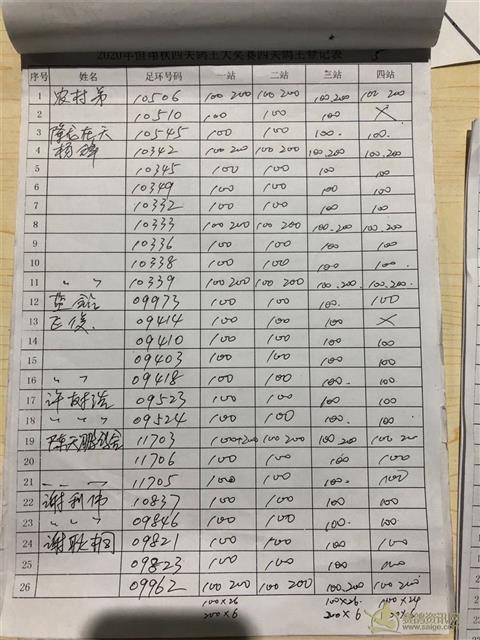 2020年 四关鸽王大奖赛四关鸽王登记表 5
序号 姓名 足环号码 一站 二站 三站 四站
1 农村弟 10506 100 200 100 200 100.200 100 200
2 10510 100 100 100. ×
3 10545 100 100 100. 100.
4 杨锋 10342 100 200 100 200 100.200 100.200
5 10345 100 100 100 100
6 10349 100 100 100 100
7 10332 100 100 100 100
8 10333 100 200 100 200 100.200 100.200
9 10336 100 100 100 100
10 10338 100 100 100 100.
11 〃 〃 10339 100 200 100 200 100.200 100.200
12 09973 100 100 100. 100
13 09414 100 100 100 ×
14 09410 100 100 100 100
15 09403 100 100 100 100
16 〃 〃 09418 100 100 100. 100
17 许 浩 09523 100 100 100 100
18 〃 〃 〃 09524 100 100 100. 100
19 陈天鹏 11703 100+200 100 200 100.200 100 200
20 11706 100 100 100 100
21 11705 100 100 100. 100
22 谢利伟 10837 100 100 100 100
23 〃 〃 〃 09846 100 100 100. 100
24 谢 09821 100 100 100 100
25 09823 100 100 100 100
26 09962 100 200 100 200 100.200 100 200
100×26 100×26. 100×24
200×6 200×6 200×6
赛鸽资讯网
www.saige.com